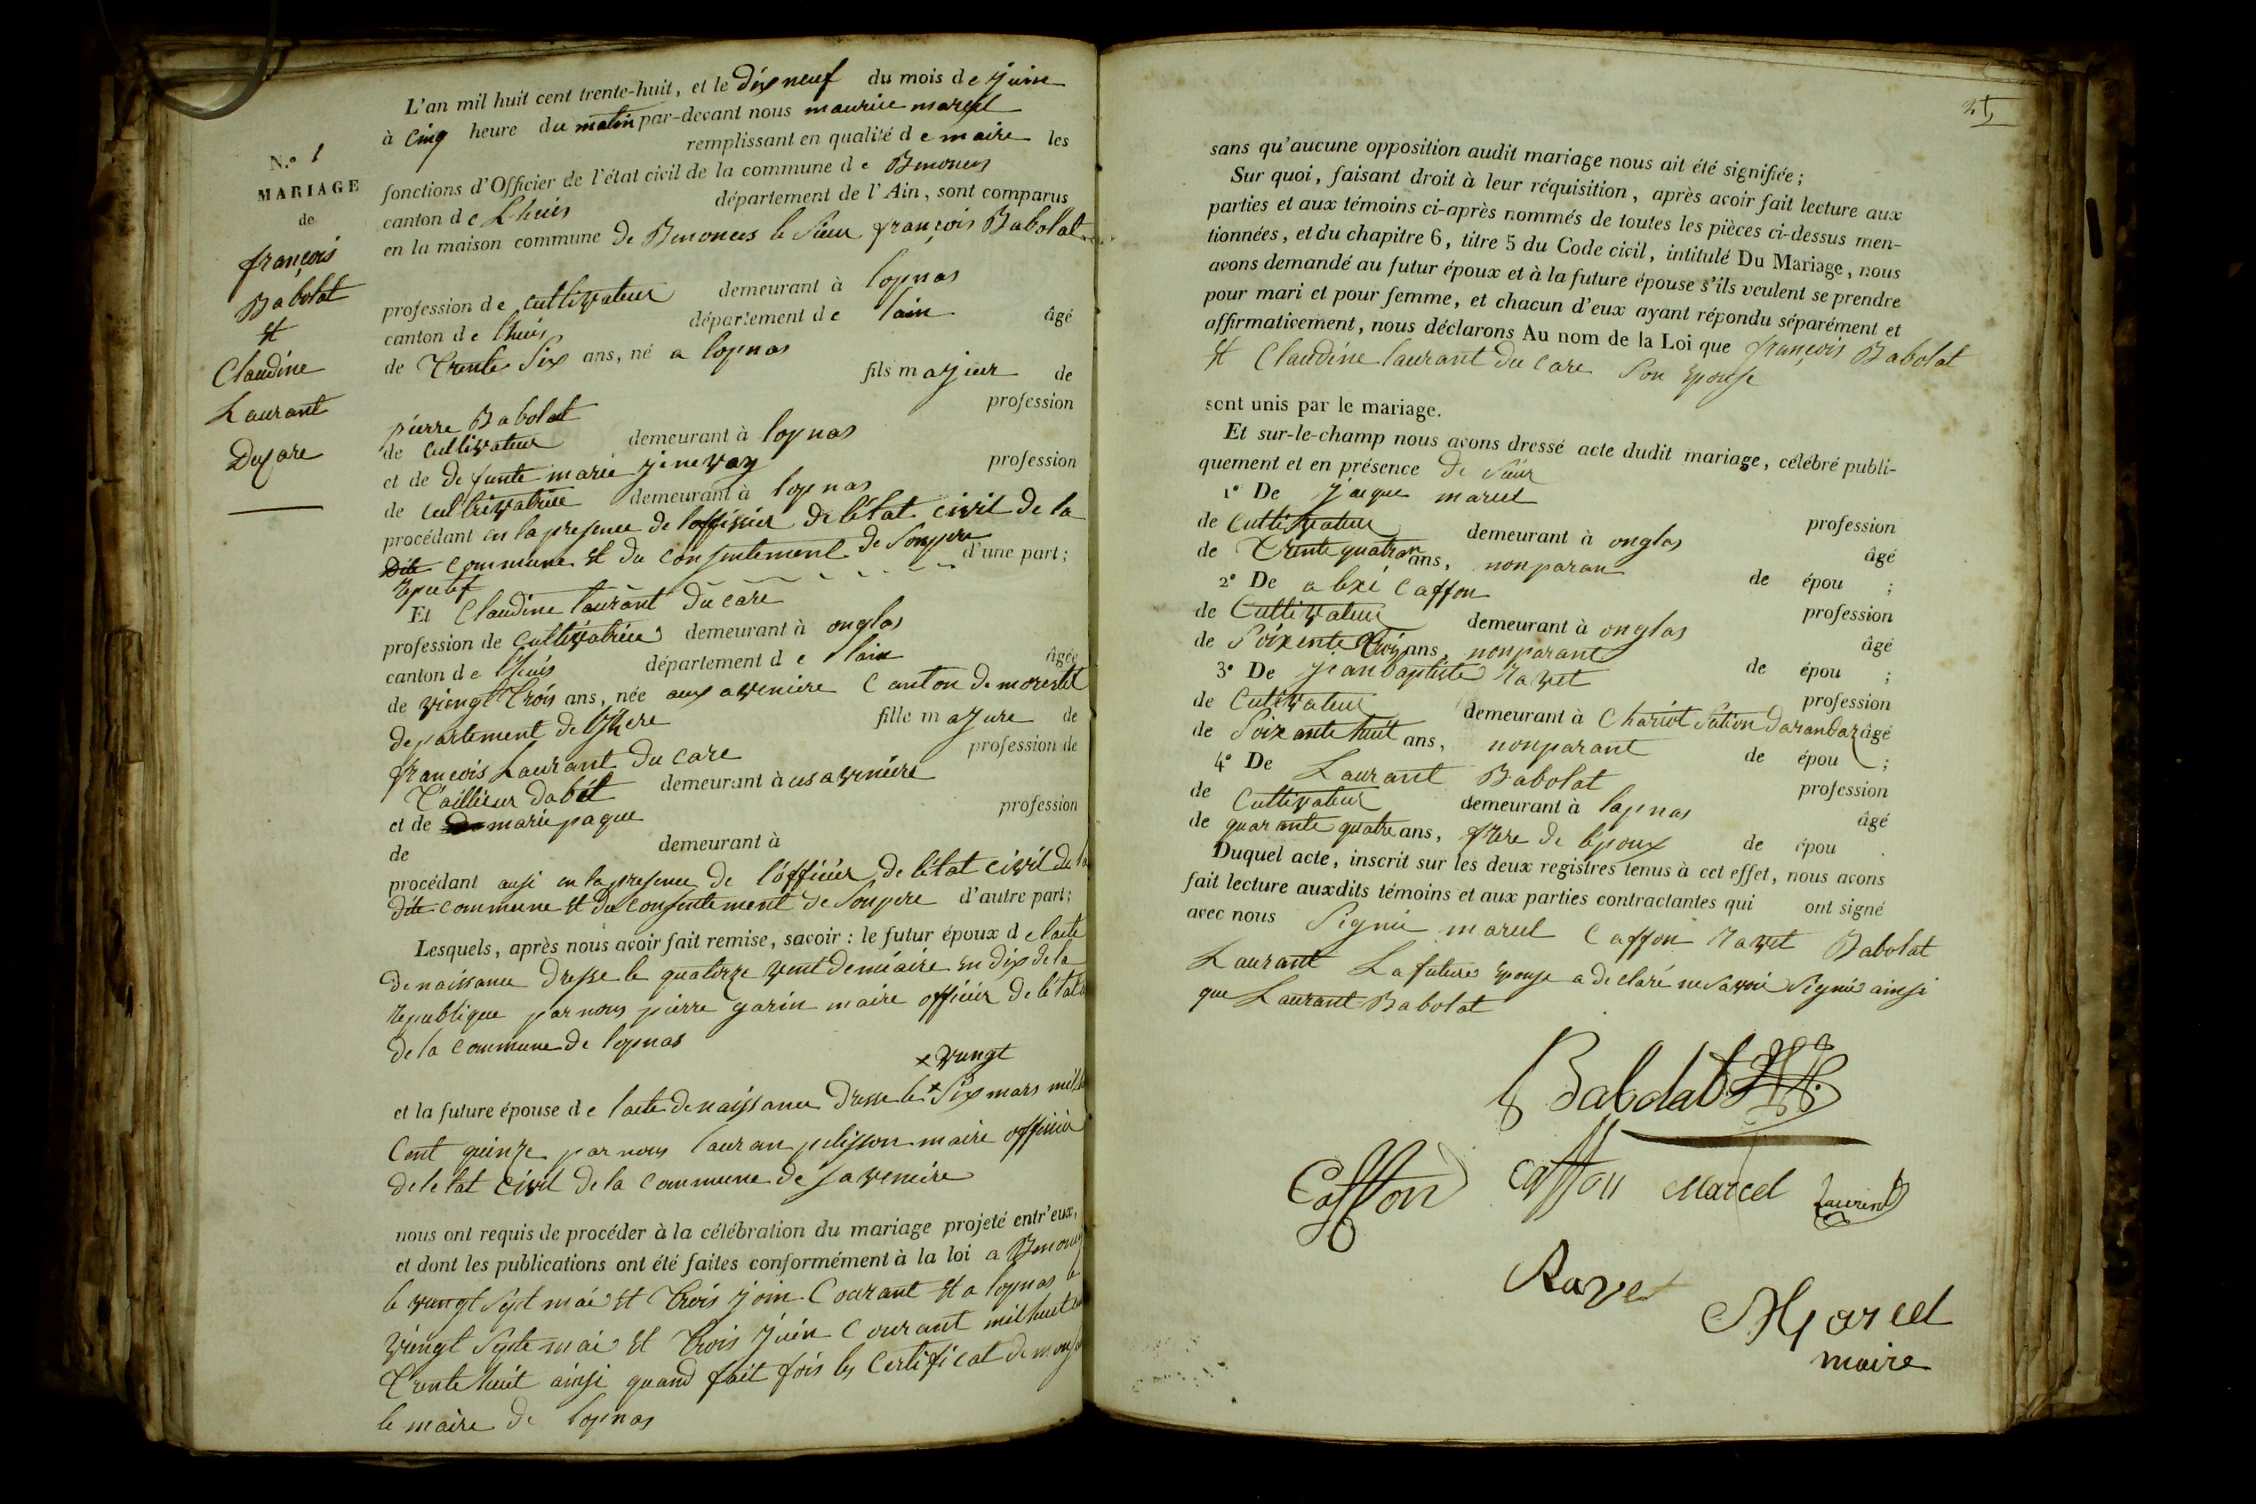 N.° 1
MARIAGE
de
françois
Babolat
et
Claudine
Laurant
Ducare
L'an mil huit cent trente-huit, et le dix neuf du mois de juin
à cinq heure du matin par-devant nous maurice marcel
remplissant en qualité de maire les
fonctions d'Officier de l'état civil de la commune de Benonces
canton de Lhuis département de l'Ain, sont comparus
en la maison commune de Benonces le sieur françois Babolat
profession de cultivateur demeurant à lopnas
canton de lhuis département de lain âgé
de trente six ans, né a lopnas
fils majieur de
pierre Babolat profession
de cultivateur demeurant à lopnas
et de defunte marie jinevay profession
de cultrivatrice demeurant à lopnas
procédant en la presence de loffisier de létat civil de la
dite commune et du consentement de son pere d'une part;
Et Claudine laurant du care
profession de cultivatrice demeurant à onglas
canton de lhuis département de lain âgée
de viengt trois ans, née aux aveniere canton de morestel
departement de lysere fille majure de
françois Laurant du care profession de
tailleur dabit demeurant à us aveniere
et de marie paque profession
de demeurant à
procédant ausi en la presence de lófficier de létat civil de la
dite commune et du consentement de son pere d'autre part;
Lesquels, après nous avoir fait remise, savoir: le futur époux de lacte
de naissance dresse le quatorze vent demiaire en dix de la
republique par nous pierre garin maire officier de létat
de la commune de lopnas
x vengt
et la future épouse de lacte de naissance dresse le x six mars mil
cent quinze par nous lauran pelisson maire officier
de létat civil de la commune de saveniere
nous ont requis de procéder à la célébration du mariage projeté entr'eux,
et dont les publications ont été faites conformément à la loi a Benonces
le vengt sept mai et trois join courant et a lopnas le
viengt septe mai et trois juin courant mil huit
trente huit ainsi quand fait fois les certificat de
le maire de lopnas
sans qu'aucune opposition audit mariage nous ait été signifiée;
Sur quoi, faisant droit à leur réquisition, après avoir fait lecture aux
parties et aux témoins ci-après nommés de toutes les pièces ci-dessus men-
tionnées, et du chapitre 6, titre 5 du Code civil, intitulé Du Mariage, nous
avons demandé au futur époux et à la future épouse s'ils veulent se prendre
pour mari et pour femme, et chacun d'eux ayant répondu séparément et
affirmativement, nous déclarons Au nom de la Loi que françois Babolat
et Claudine laurant du care son epouse
sont unis par le mariage.
Et sur-le-champ nous avons dressé acte dudit mariage, célébré publi-
quement et en présence de sieur
1° De jacque marcel profession
de cultivateur demeurant à onglas âgé
de trente quatre ans, non paran de épou ;
2° De alexi Caffon profession
de cultivateur demeurant à onglas âgé
de soixente trois ans, non parant de épou ;
3° De jean baptiste ravet profession
de cultivateur demeurant à âgé
de soixante huit ans, non parant de épou ;
4° De Laurant Babolat profession
de cultivateur demeurant à lapnas âgé
de quarante quatre ans, frere de lépoux de épou .
Duquel acte, inscrit sur les deux registres tenus à cet effet, nous avons
fait lecture auxdits témoins et aux parties contractantes qui ont signé
avec nous signié marcel Caffon ravet Babolat
Laurant La future epouse a declaré ne savoir signié ainsi
que Laurant Babolat
Babolat
Caffon Caffon Marcel Laurent
Ravet
Marcel
maire